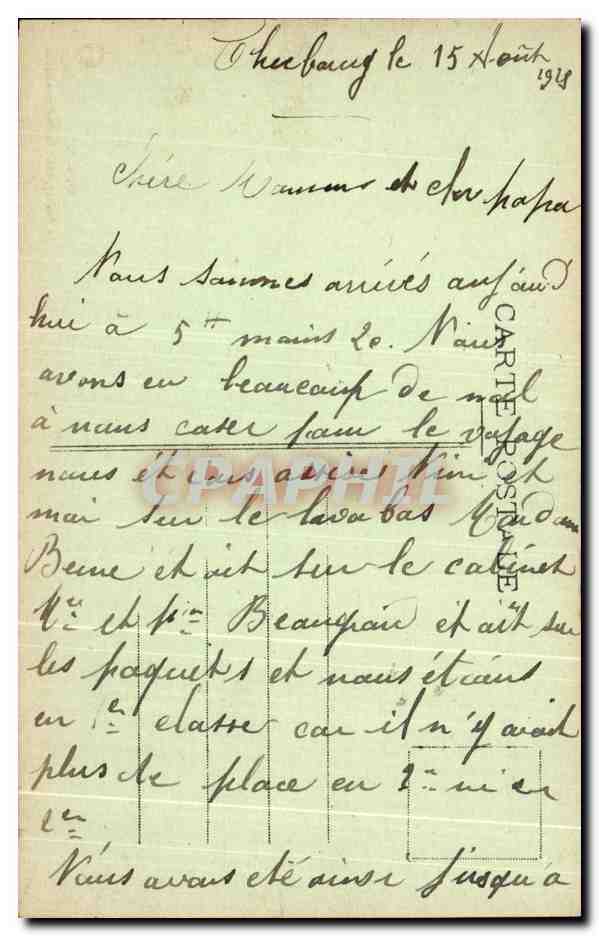 Cherbourg le 15 Août
1928
Chère Maman et cher papa
Nous sommes arrivés aujourd
hui à 5 moins 20. Nous
avons eu beaucoup de mal
à nous caser pour le voyage
nous étions assises et
moi sur le lavabas Madame
Berne étoit sur le cabinet
et Beaugrain étoit sur
les paquets et nous étions
en classe car il n'y avait
plus de place en ni en
Nous avons été ainsi jusqu'à
CARTE POSTALE
CPAPHIL